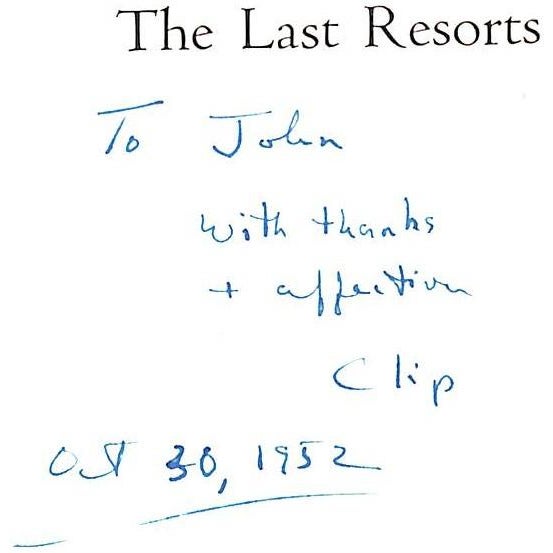 The Last Resorts
To John
with thanks
+ affection
Clip
Oct 30, 1952